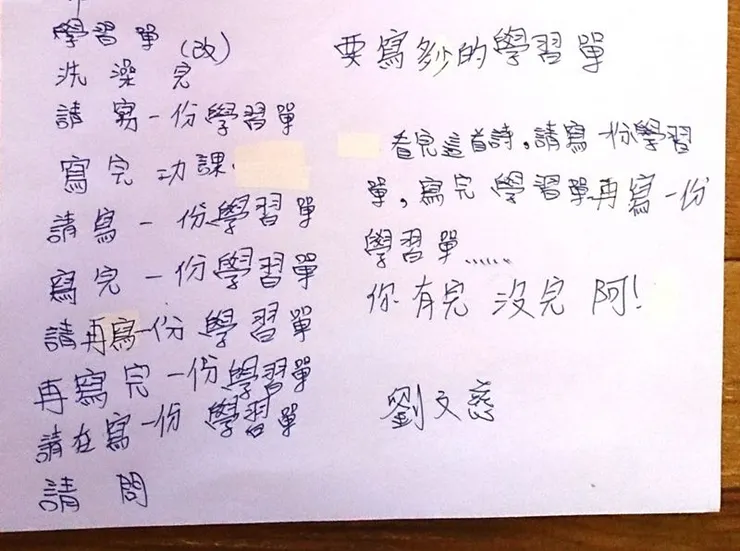 學習單(改)
洗澡完
請寫一份學習單
寫完功課.
請寫一份學習單
寫完一份學習單
請再寫一份學習單
再寫完一份學習單
請在寫一份學習單
請問
要寫多少的學習單
看完這首詩,請寫一份學習
單,寫完學習單再寫一份
學習單......
你有完沒完阿!
劉文慈